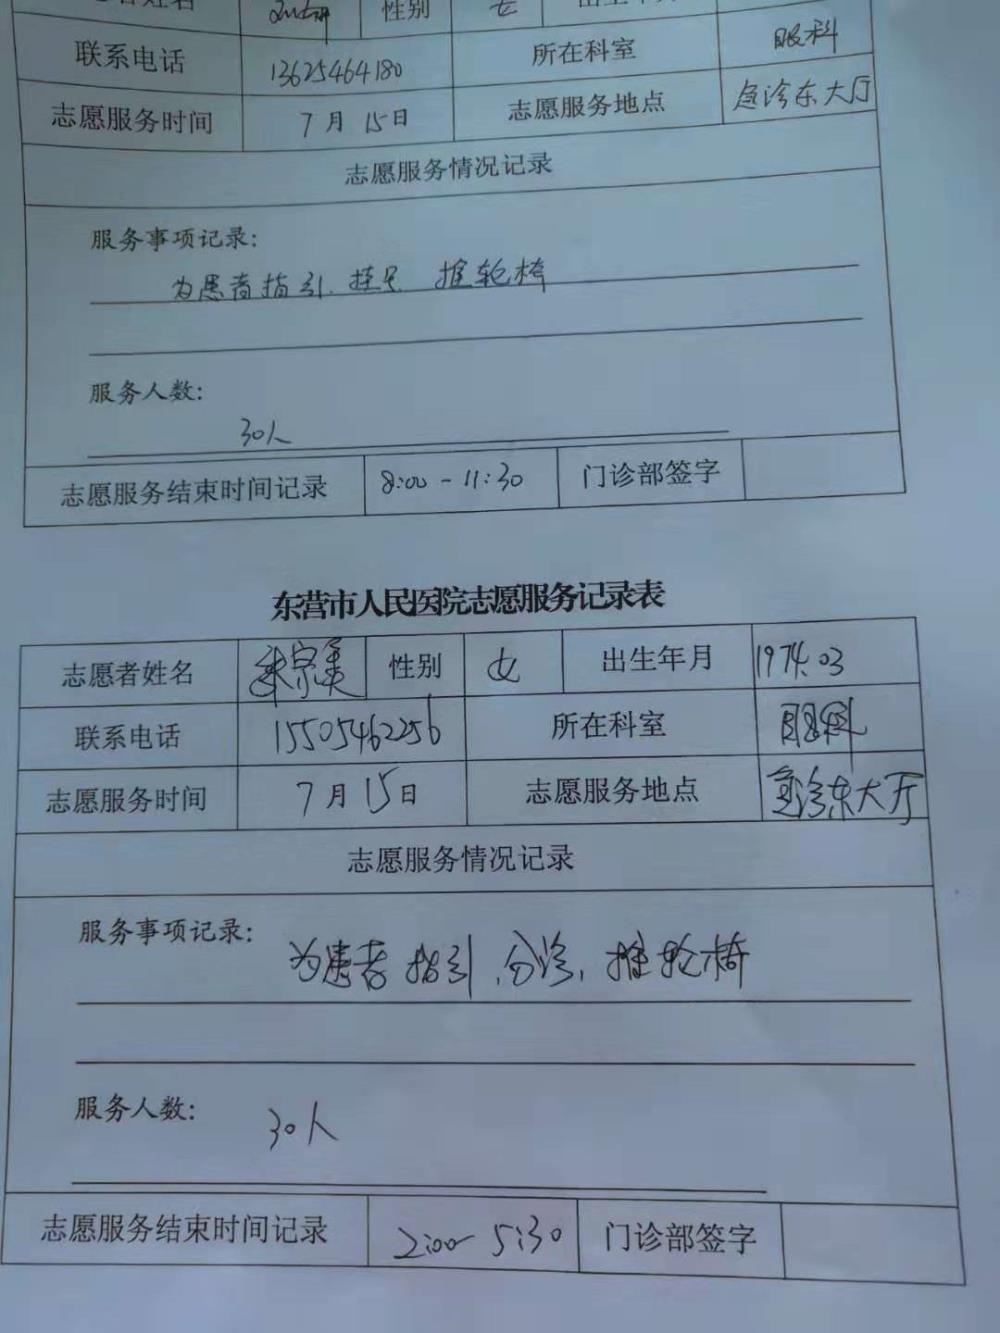 性别 女
联系电话 13625464180 所在科室 眼科
志愿服务时间 7月15日 志愿服务地点 急诊东大厅
志愿服务情况记录
服务事项记录:
为患者指引. 挂号 推轮椅
服务人数:
30人
志愿服务结束时间记录 8:00-11:30 门诊部签字
东营市人民医院志愿服务记录表
志愿者姓名 性别 女 出生年月 1974.03
联系电话 15505462256 所在科室 眼科
志愿服务时间 7月15日 志愿服务地点 急诊东大厅
志愿服务情况记录
服务事项记录:
为患者指引,分诊,推轮椅
服务人数:
30人
志愿服务结束时间记录 2:00-5:30 门诊部签字